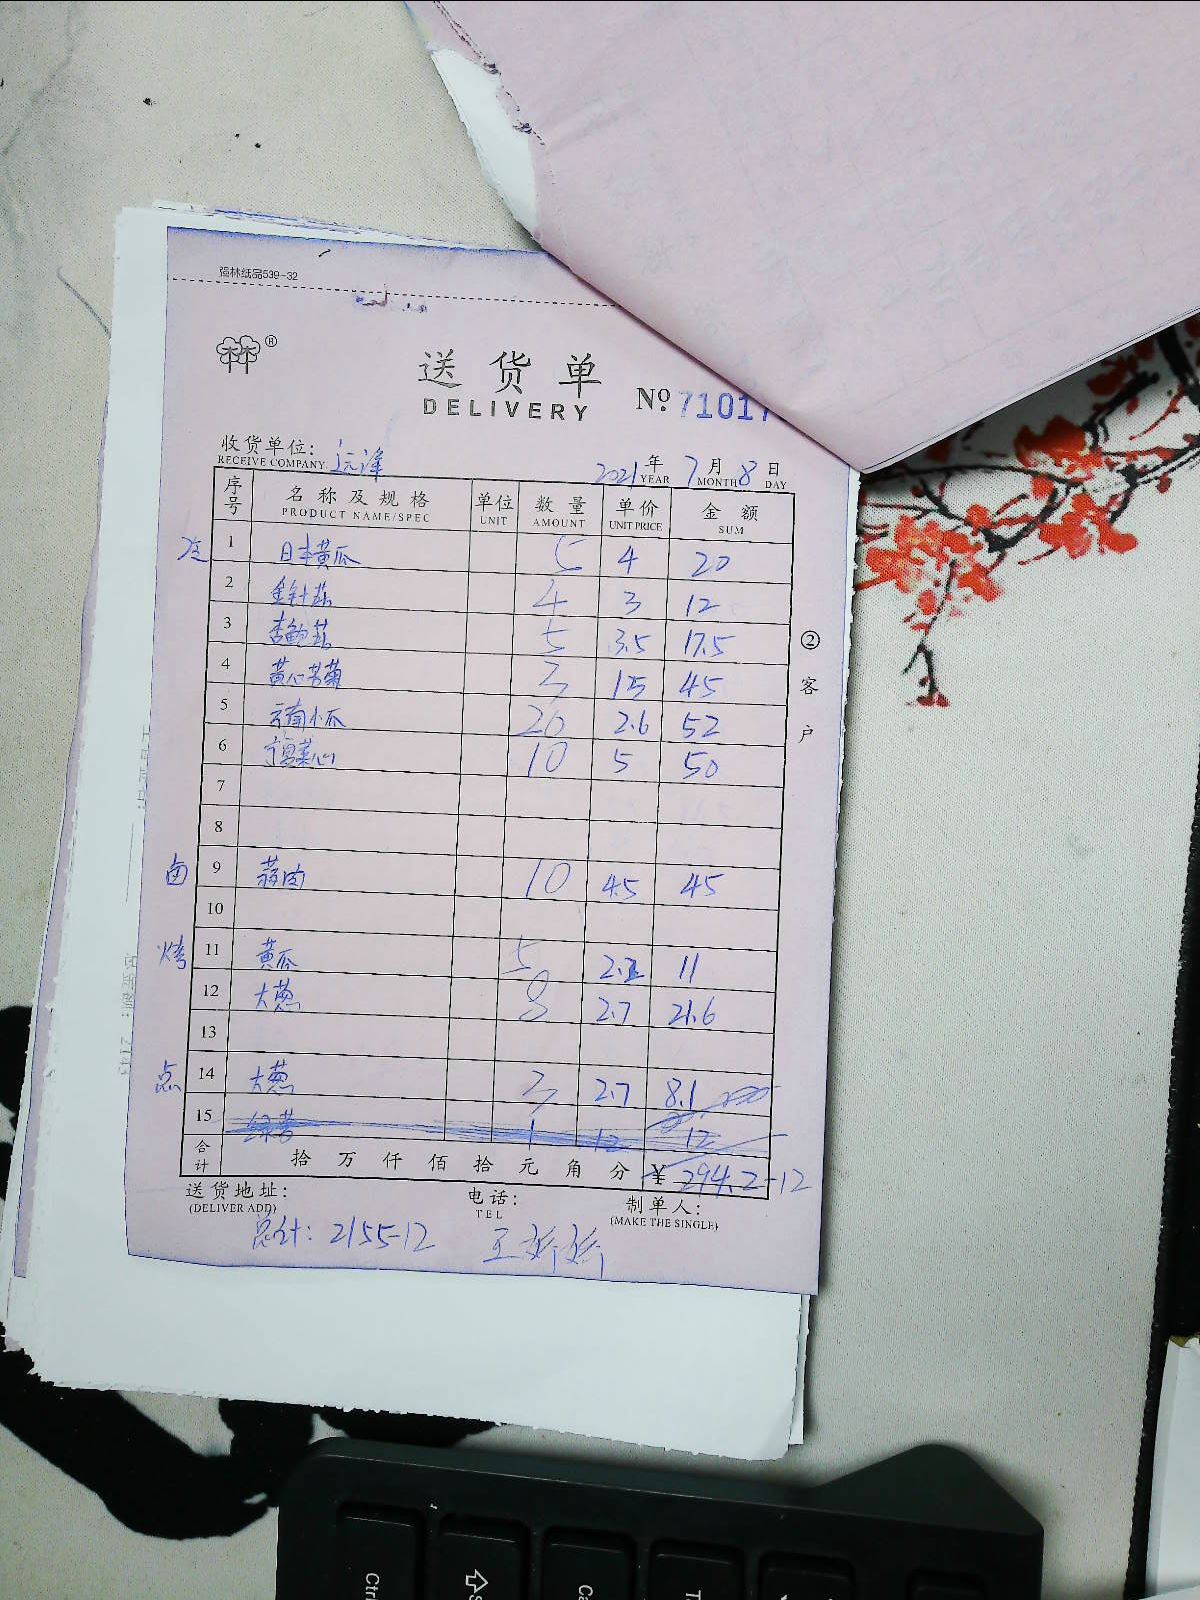 强林纸品539-32
林林®
送货单
DELIVERY
No. 71017
收货单位: 远洋
RECEIVE COMPANY
2021年7月8日
YEAR MONTH DAY
序号 名称及规格 单位 数量 单价 金额
PRODUCT NAME/SPEC UNIT AMOUNT UNIT PRICE SUM
1 日本黄瓜 5 4 20
2 金针菇 4 3 12
3 杏鲍菇 5 3.5 17.5
4 黄心苦菊 3 15 45
5 云南小瓜 20 2.6 52
6 宁夏菜心 10 5 50
7
8
卤 9 蒜肉 10 4.5 45
10
烤 11 黄瓜 5 2.2 11
12 大葱 8 2.7 21.6
13
点 14 大葱 3 2.7 8.1
15 1 12 12
合计 拾万仟佰拾元角分 ¥ 294.2-12
②客户
送货地址: 电话: 制单人:
(DELIVER ADD) TEL (MAKE THE SINGLE)
总计: 2155-12 王娇娇
Ctrl